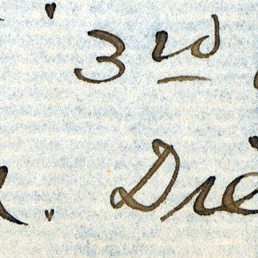 3rd
Die